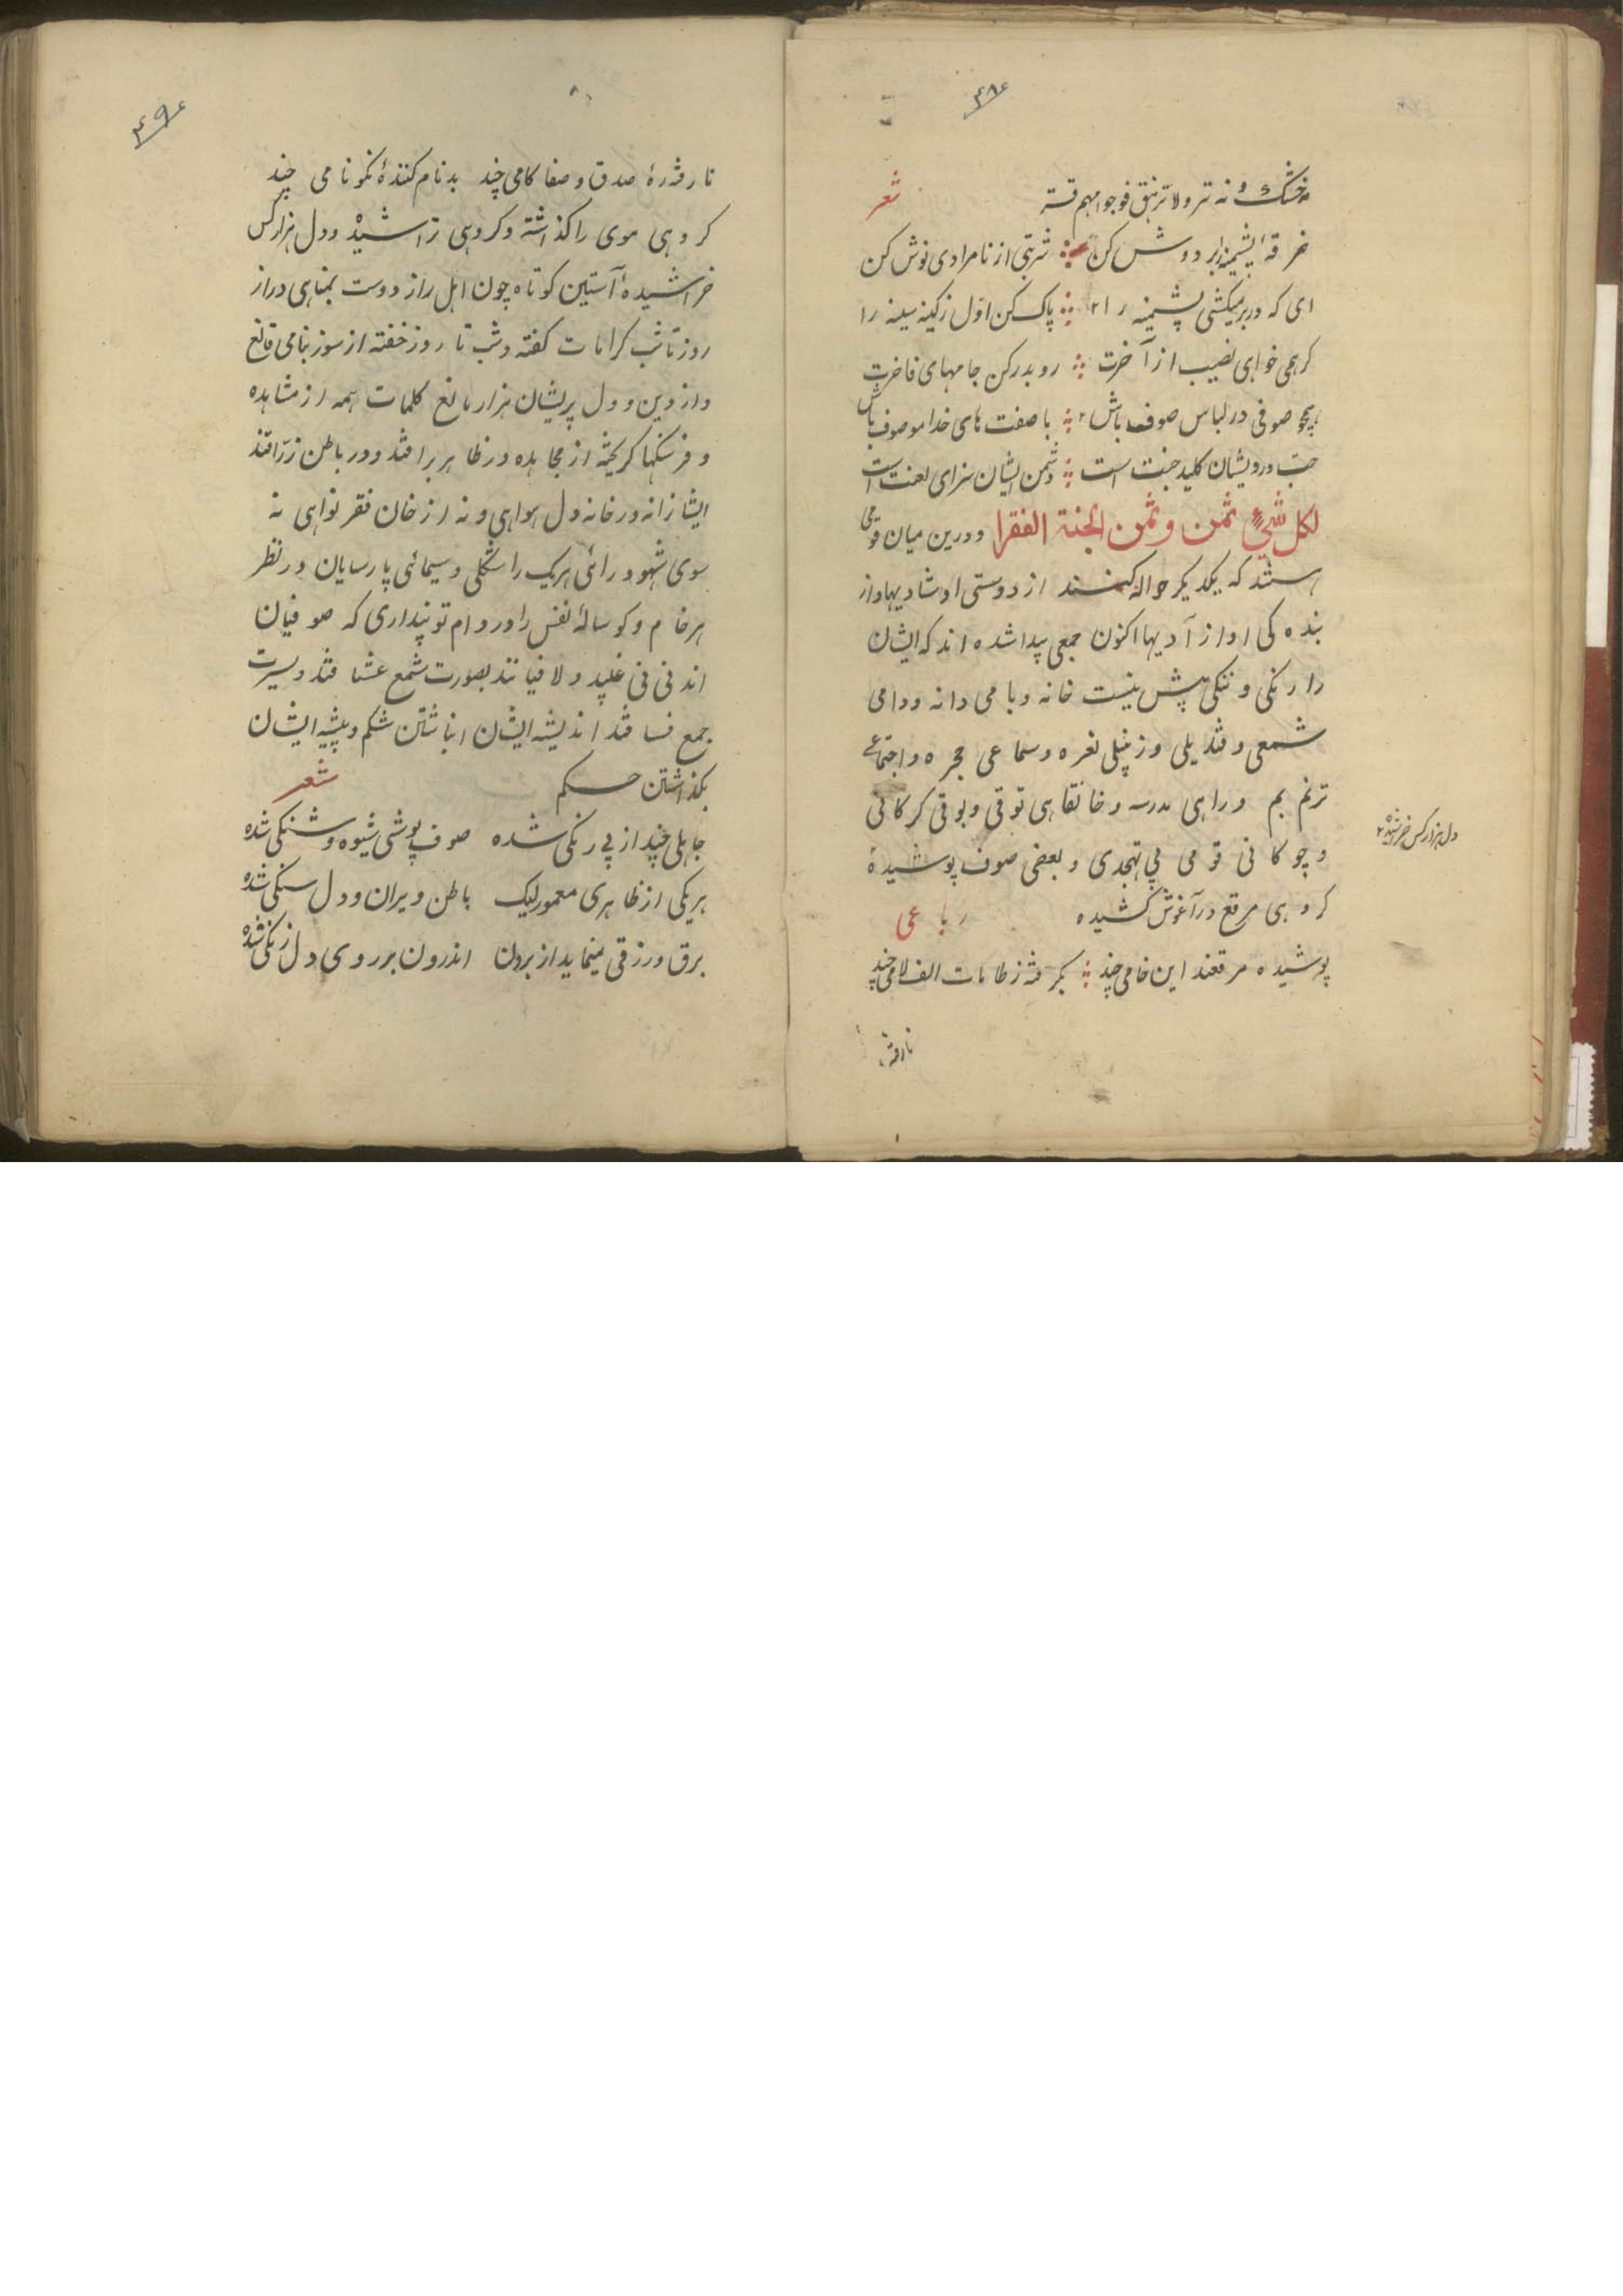 ۴۸
نه خشک و نه تر ولا ترهق وجوههم قتر شعر
خرقهٔ پشمینه بر دوش کن شربتی از نامرادی نوش کن
ای که در بر میکشی پشمینه را پاک کن اول ز کینه سینه را
کر همی خواهی نصیب از آخرت رو بدر کن جامهای فاخرت
همچو صوفی در لباس صوف باش با صفت های خدا موصوف باش
حبّ درویشان کلید جنت است دشمن ایشان سزای لعنت است
لکل شیٔ ثمن و ثمن الجنة الفقرا ودرین میان قومی
هستند که یکدیکر حواله کنند از دوستی او شادیها و از
بنده کی او آزادیها اکنون جمعی پیدا شده اند که ایشان
را رنکی و ننکی پیش نیست خانه و بامی دانه و دامی
شمعی و قندیلی و زنبیلی نعره و سماعی حجره و اجتماعی
ترنم بم و راهی مدرسه و خانقاهی توقی و بوقی کرکانی
و چوکانی قومی بی تهجدی و بعضی صوف پوشیدهٔ
کروهی مرقع در آغوش کشیده رباعی
پوشیده مرقعند این خامی چند بکرفته ز طامات الف لامی چند
نارفته
دل هزار کس خراشیده
۴۹
نا رفته رهٔ صدق و صفا کامی چند بدنام کنندهٔ نکونامی چند
کروهی موی را کذاشته و کروهی تراشیده و دل هزار کس
خراشیده آستین کوتاه چون اهل راز و دست بمناهی دراز
روز تا شب کرامات کفته و شب تا روز خفته از سوز بنامی قانع
و از دین و دل پریشان هزار مانع کلمات همه از مشاهده
و فرسنکها کریخته از مجاهده در ظاهر براقند و در باطن زرّاقند
ایشانرا نه در خانه دل هوا هی و نه از خان فقر نواهی نه
سوی شهود رائی هر یک را شکلی و سیمائی پارسایان در نظر
هر خام و کوسالهٔ نفس را در دام تو پنداری که صوفیان
اند فی فی غلیند و لافیانند بصورت شمع عشاقند و سیرت
جمع فساقند اندیشه ایشان انباشتن شکم و پیشه ایشان
بکذاشتن حکم شعر
جاهلی چند از پی رنکی شده صوف پوشی شیوه و شنکی شده
هر یکی از ظاهری معمور لیک باطن ویران و دل سنکی شده
برق و رزقی مینماید از برون اندرون بر روی دل زنکی شده